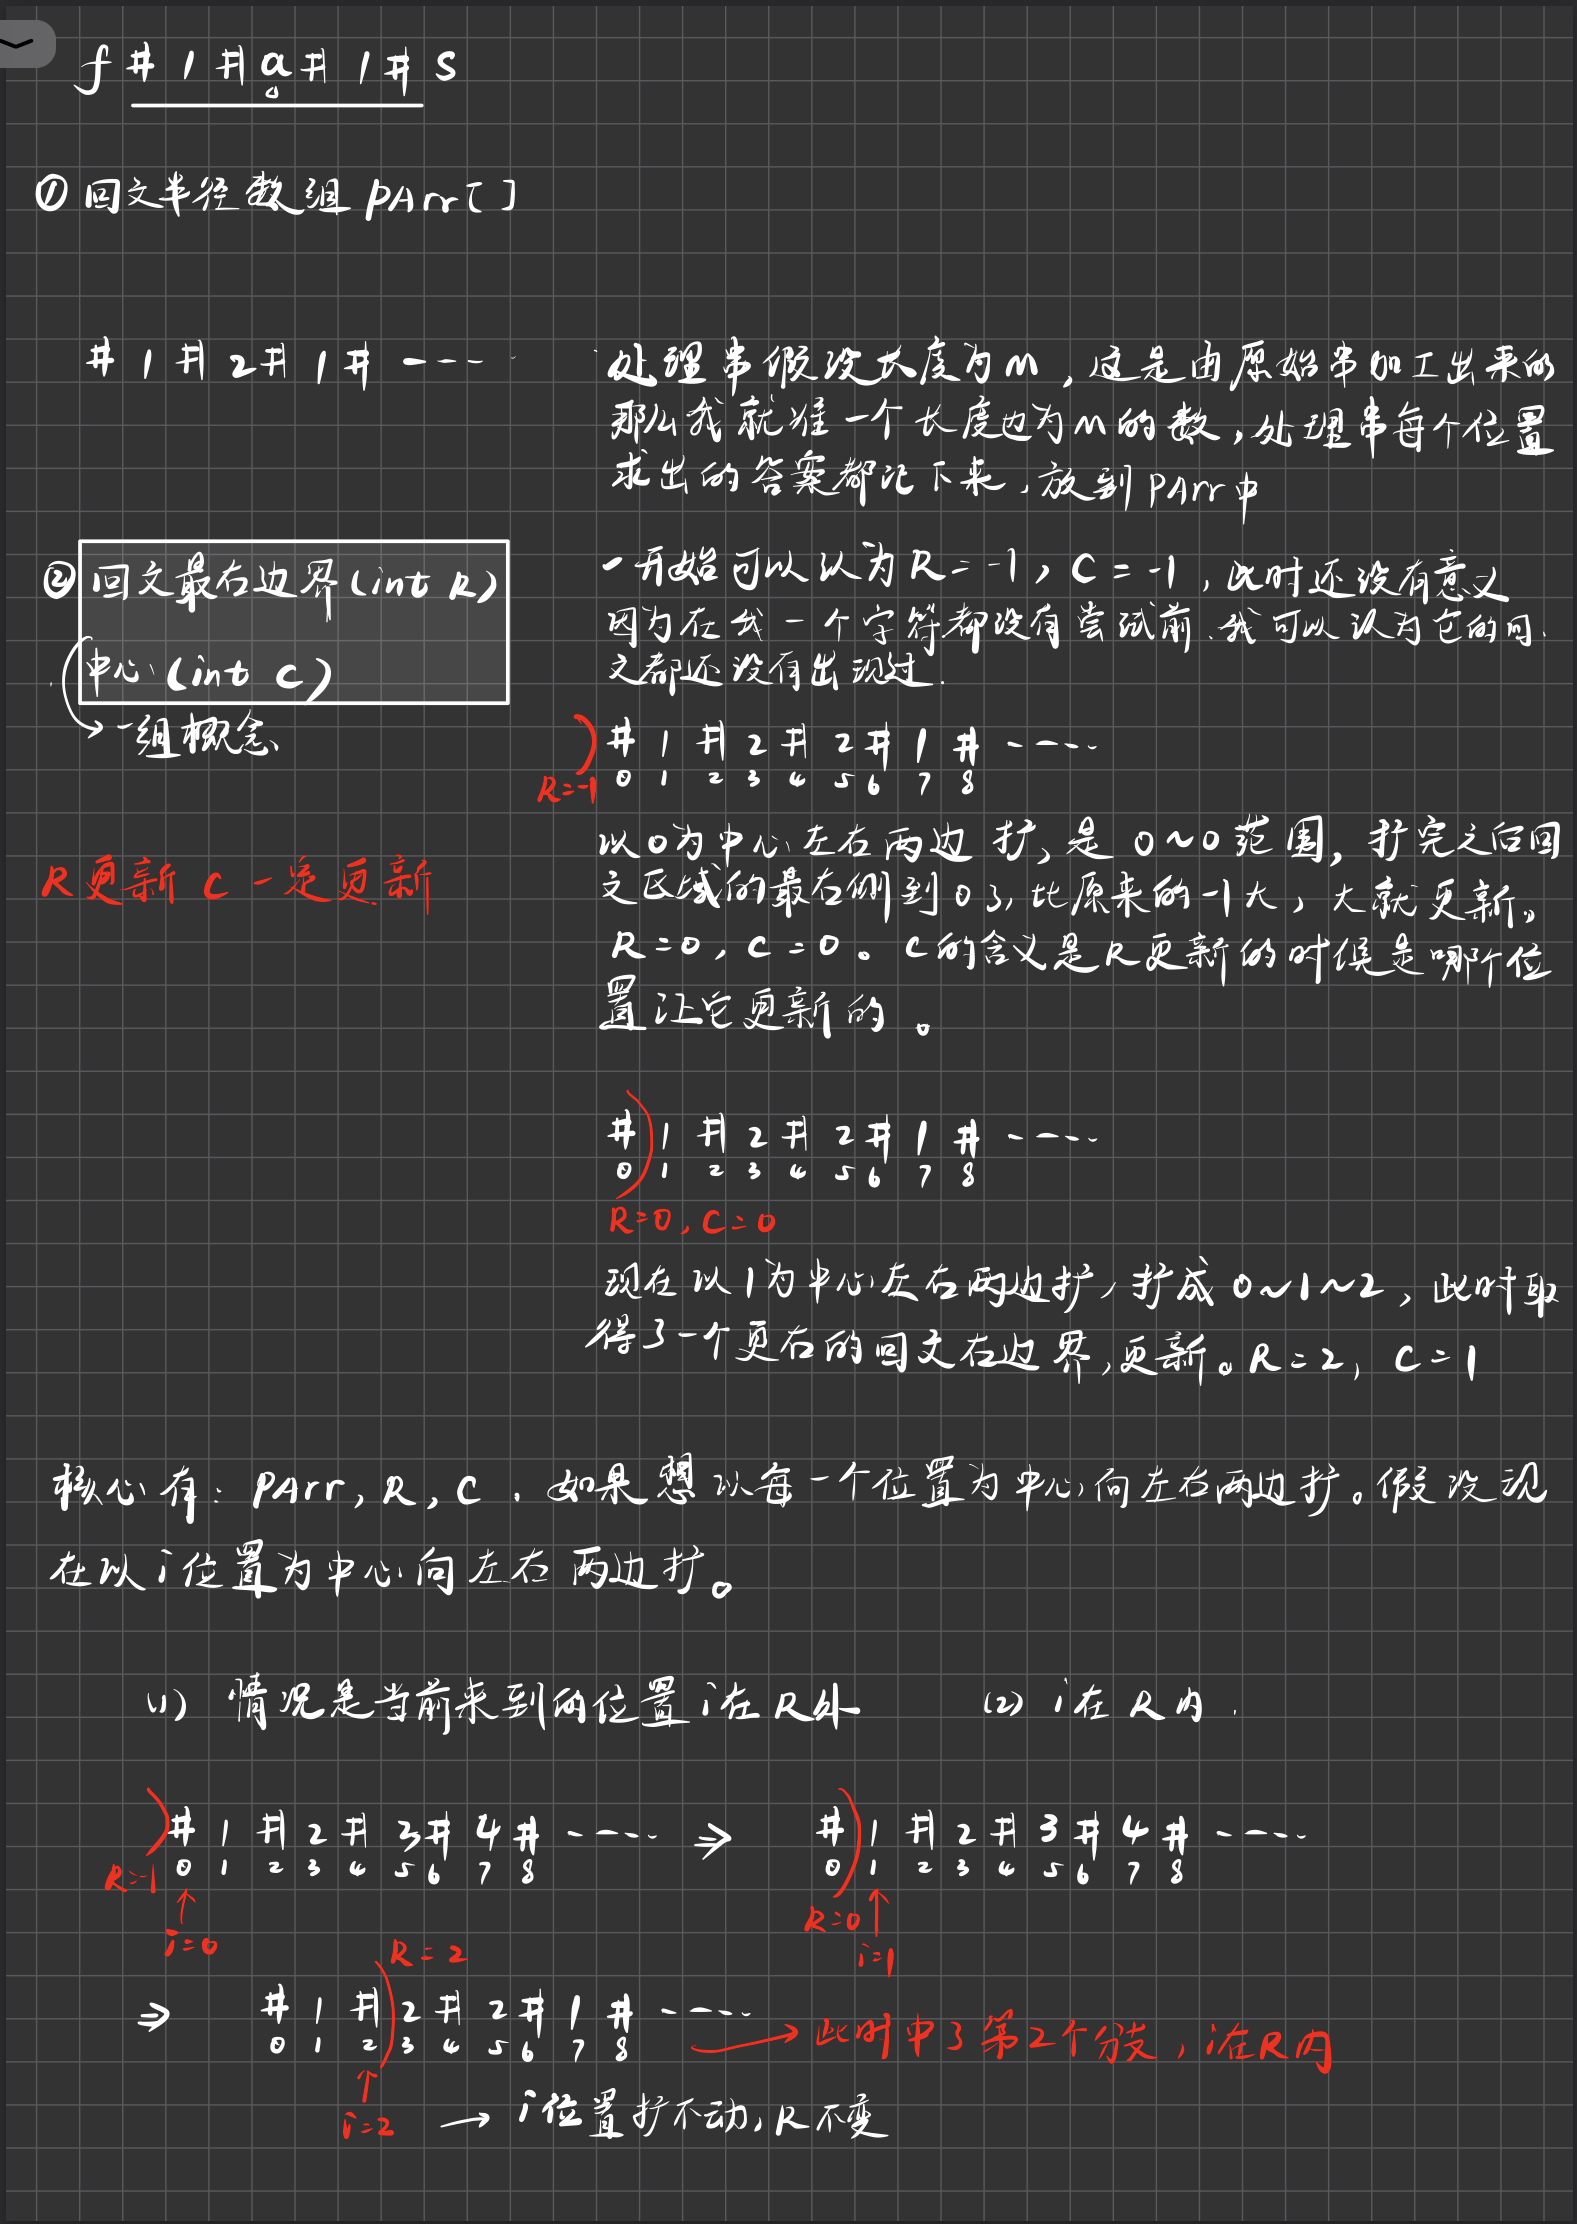 f # 1 # a # 1 # s
① 回文半径数组 pArr[]
# 1 # 2 # 1 # ----
处理串假设长度为m，这是由原始串加工出来的
那么我就准一个长度也为m的数，处理串每个位置
求出的答案都记下来，放到pArr中
② 回文最右边界(int R)
中心(int C)
→一组概念
一开始可以认为R=-1，C=-1，此时还没有意义
因为在我一个字符都没有尝试前，我可以认为它的回
文都还没有出现过.
# 1 # 2 # 2 # 1 # ----
R=-1
0 1 2 3 4 5 6 7 8
R更新 C一定更新
以0为中心左右两边扩，是0~0范围，扩完之后回
文区域的最右侧到0了，比原来的-1大，大就更新。
R=0，C=0。C的含义是R更新的时候是哪个位
置让它更新的。
# 1 # 2 # 2 # 1 # ----
0 1 2 3 4 5 6 7 8
R=0，C=0
现在以1为中心左右两边扩，扩成0~1~2，此时取
得了一个更右的回文右边界,更新。R=2，C=1
核心有：pArr，R，C，如果想以每一个位置为中心向左右两边扩。假设现
在以i位置为中心向左右两边扩。
(1) 情况是当前来到的位置i在R外
(2) i在R内.
# 1 # 2 # 3 # 4 # ---- ⇒
0 1 2 3 4 5 6 7 8
R=-1
↑
i=0
# 1 # 2 # 3 # 4 # ----
0 1 2 3 4 5 6 7 8
R=0 ↑
i=1
R=2
⇒ # 1 # 2 # 2 # 1 # ----
0 1 2 3 4 5 6 7 8
→此时中了第2个分支，i在R内
↑
i=2 → i位置扩不动，R不变